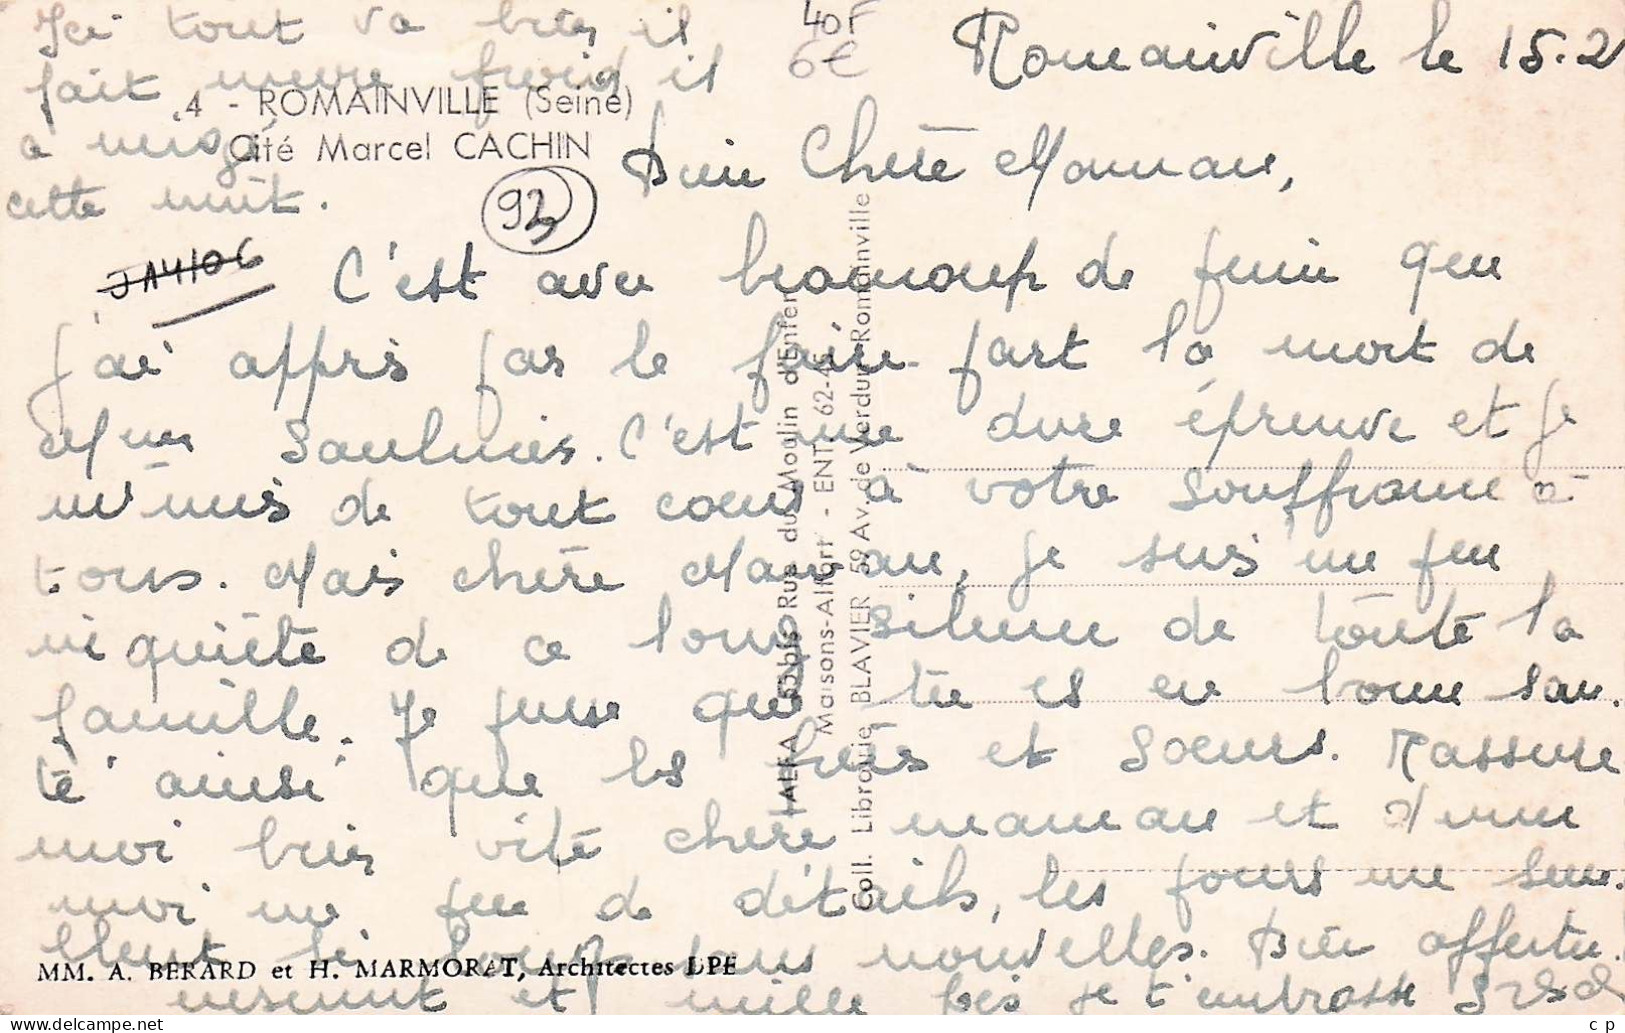 Ici tout va bien il
fait encore froid il
a neigé
cette nuit.
40F
6€
Romainville le 15.2
4 - ROMAINVILLE (Seine)
Cité Marcel CACHIN
93
JA4106
Bien Chère Maman,
C'est avec beaucoup de peine que
j'ai appris par le faire part la mort de
Mme Saulnier. C'est une dure épreuve et je
m'unis de tout coeur à votre souffrance à
tous. Mais chère Maman, je suis un peu
inquiète de ce long silence de toute la
famille. Je pense que tu es en bonne san.
té ainsi que les frères et soeurs. Rassure
moi bien vite chère maman et donne
moi un peu de détails, les jours me sem.
blent si longs sans nouvelles. Bien affectu.
eusement et mille fois je t'embrasse
MM. A. BERARD et H. MARMORAT, Architectes DPE
ALFA 55bis Rue du Moulin d'Enfer
Maisons-Alfort - ENT. 62-
Coll. Librairie BLAVIER 59 Av. de Verdun Romainville
c p